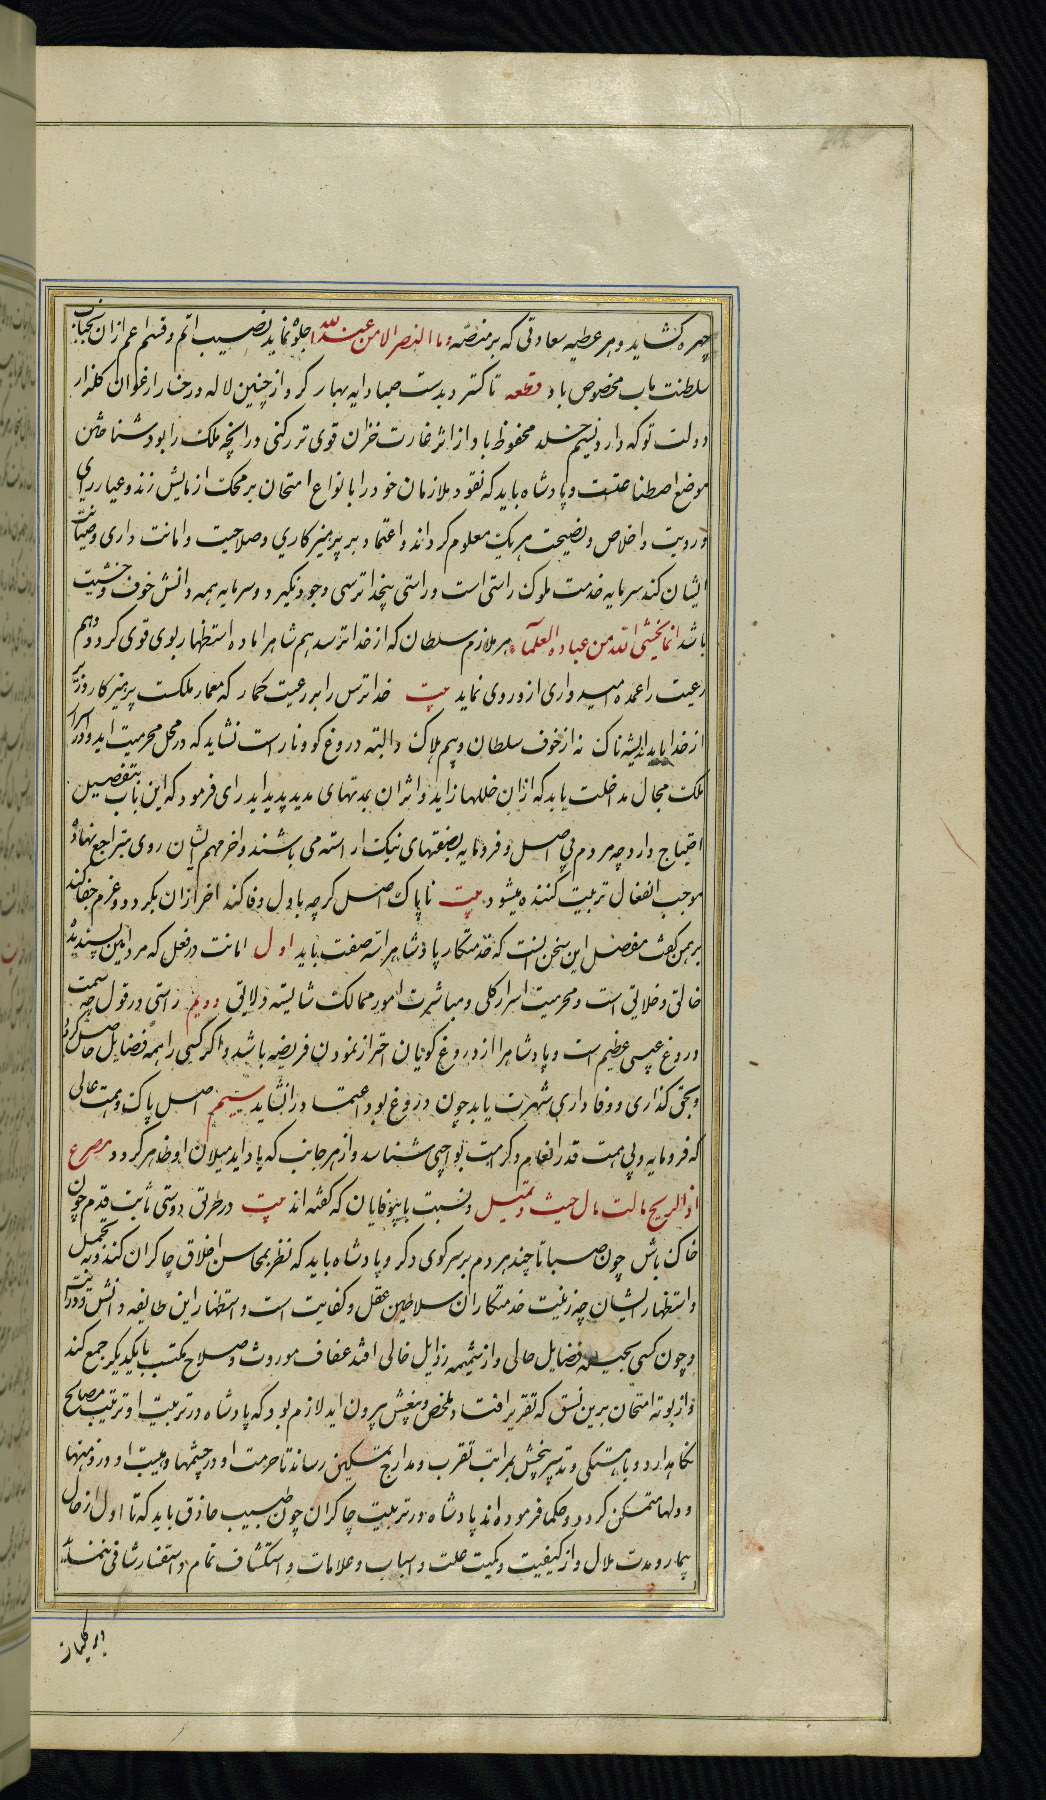 چهره کشاید و هر عطیه سعادتی که بر منصّه وما النصر الا من عند الله جلوه نماید نصیب اتم و قسم اعم ازان بجناب
سلطنت مآب مخصوص باد قطعه تا کسترد بدست صبا دایه بهار کرد از چنین لاله و رخسار ارغوان کلزار
دولت تو که دارد نسیم خلد محفوظ باد از اثر غارت خزان قوی تر رکنی در انچه ملک را بود شناختن
موضع اصطناعتست و پادشاه باید که نقود ملازمان خود را بانواع امتحان بر محک ازمایش زند و عیار رای
و رویت و اخلاص و نصیحت هر یک معلوم کرداند و اعتماد بر پرهیزکاری و صلاحیت و امانت داری و صیانت
ایشان کند سرمایه خدمت ملوک راستی است و راستی بیخداترسی وجود نکیرد و سرمایه همه دانش خوف و خشیت
باشد انما یخشی الله من عباده العلمآء هر ملازم سلطان که از خدا ترسد هم شاه را ماده استظهار بوی قوی کردد و هم
رعیت را عمده امیدواری ازو روی نماید بیت خدا ترس را بر رعیت کمار که معمار ملکست پرهیزکار وزیر
از خدا باید اندیشه ناک نه از خوف سلطان و بیم هلاک و البته دروغ کو و ناراست نشاید که در محل محرمیت اید و در اسرار
ملک مجال مداخلت یابد که ازان خللها زاید و اثر ان بمدتهای مدید پدید اید رای فرمود که این باب بتفصیل
احتیاج دارد چه مردم بی اصل و فرومایه بصفتهای نیک اراسته می باشند و اخر مهم ایشان روی بتراجع نهاده
موجب انفعال تربیت کننده میشود بیت ناپاک اصل کرچه باول وفا کند اخر ازان بکردد و عزم جفا کند
برهمن کفت مفصل این سخن انست که خدمتکار پادشاه را سه صفت باید اول امانت در فعل که مرد امین پسندیده
خالق و خلایق است و محرمیت اسرار کلی و مباشرت امور ممالک شایسته و لایق دویم راستی در قول چه سمت
دروغ عیبی عظیم است و پادشاه را از دروغ کویان احتراز نمودن فریضه باشد و اکر کسی را همه فضایل حاصل کردد
و بحق کذاری و وفاداری شهرت یابد چون دروغ بود اعتماد را نشاید سیم اصل پاک و همت عالی
که فرومایه و بی همت قدر انعام و کرامت بواجبی نشناسد و از هر جانب که باد اید میلان او ظاهر کردد مصرع
اذا الریح مالت مال حیث تمیل و نسبت با بیوفایان که کفته اند بیت در طرق دوستی ثابت قدم چون
خاک باش چون صبا تا چند هر دم بر سر کوی دکر و پادشاه باید که نظر بمحاسن اخلاق چاکران کند و نه تجمل
و استظهار ایشان چه زینت خدمتکاران سلاطین عقل و کفایت است و استظهار این طایفه دانش و درایت
و چون کسی بجمیع فضایل حالی و از شیمه رذایل خالی افتد عفاف موروث و صلاح مکتسب با یکدیکر جمع کند
و از بوته امتحان برین نسق که تقریر افتاد مخلص و بیغش بیرون اید لازم بود که پادشاه در تربیت او ترتیب مصالح
نکاهدارد و باهستکی و تدبیر بخشش بمراتب تقرب و مدارج تمکین رساند تا حرمت او در چشمها و هیبت او در ذهنها
و دلها متمکن کردد و حکما فرموده اند پادشاه در تربیت چاکران چون طبیب حاذق باید که تا اول از حال
بیمار و مدت ملال و از کیفیت و کمیت علت و اسباب و علامات و استکشاف تمام و استفسار شافی ننماید